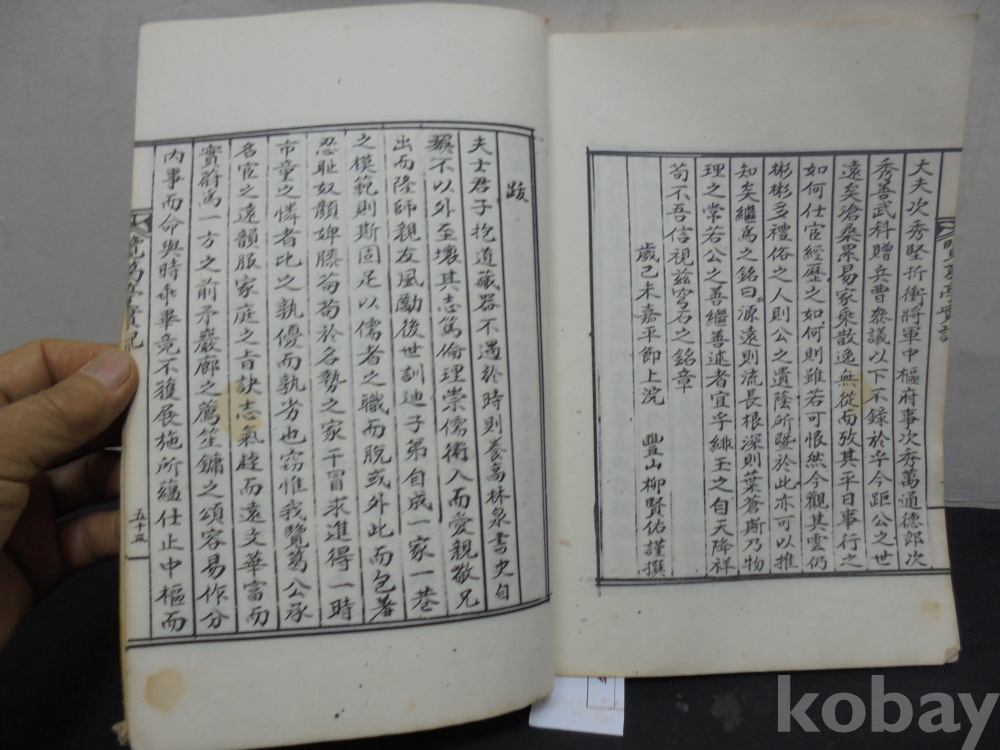 大夫次秀堅折衝將軍中樞府事次秀萬通德郎次
秀善武科贈兵曹參議以下不錄於乎今距公之世
遠矣滄桑累易家乘散逸無從而攷其平日事行之
如何仕宦經歷之如何則雖若可恨然今觀其雲仍
彬彬多禮俗之人則公之遺蔭所曁於此亦可以推
知矣繼爲之銘曰源遠則流長根深則葉蒼斯乃物
理之常若公之善繼善述者宜乎緋玉之自天降祥
苟不吾信視玆穹石之銘章
歲己未嘉平節上浣 豊山柳賢佑謹撰
跋
夫士君子抱道藏器不遇於時則養高林泉書史自
娛不以外至壞其志篤倫理崇儒術入而愛親敬兄
出而隆師親友風勵後世訓迪子弟自成一家一巷
之模範則斯固足以儒者之職而脫或外此而包羞
忍恥奴顔婢膝苟苟於名勢之家干冒求進得一時
市童之憐者比之孰優而孰劣也窃惟我覽葛公承
名官之遠韻服家庭之旨訣志氣趠而遠文華富而
實蔚爲一方之前矛巖廊之薦笙鏞之頌容易作分
內事而命與時乖畢竟不獲展施所蘊仕止中樞而
覽葛亭實記
五十三
kobay